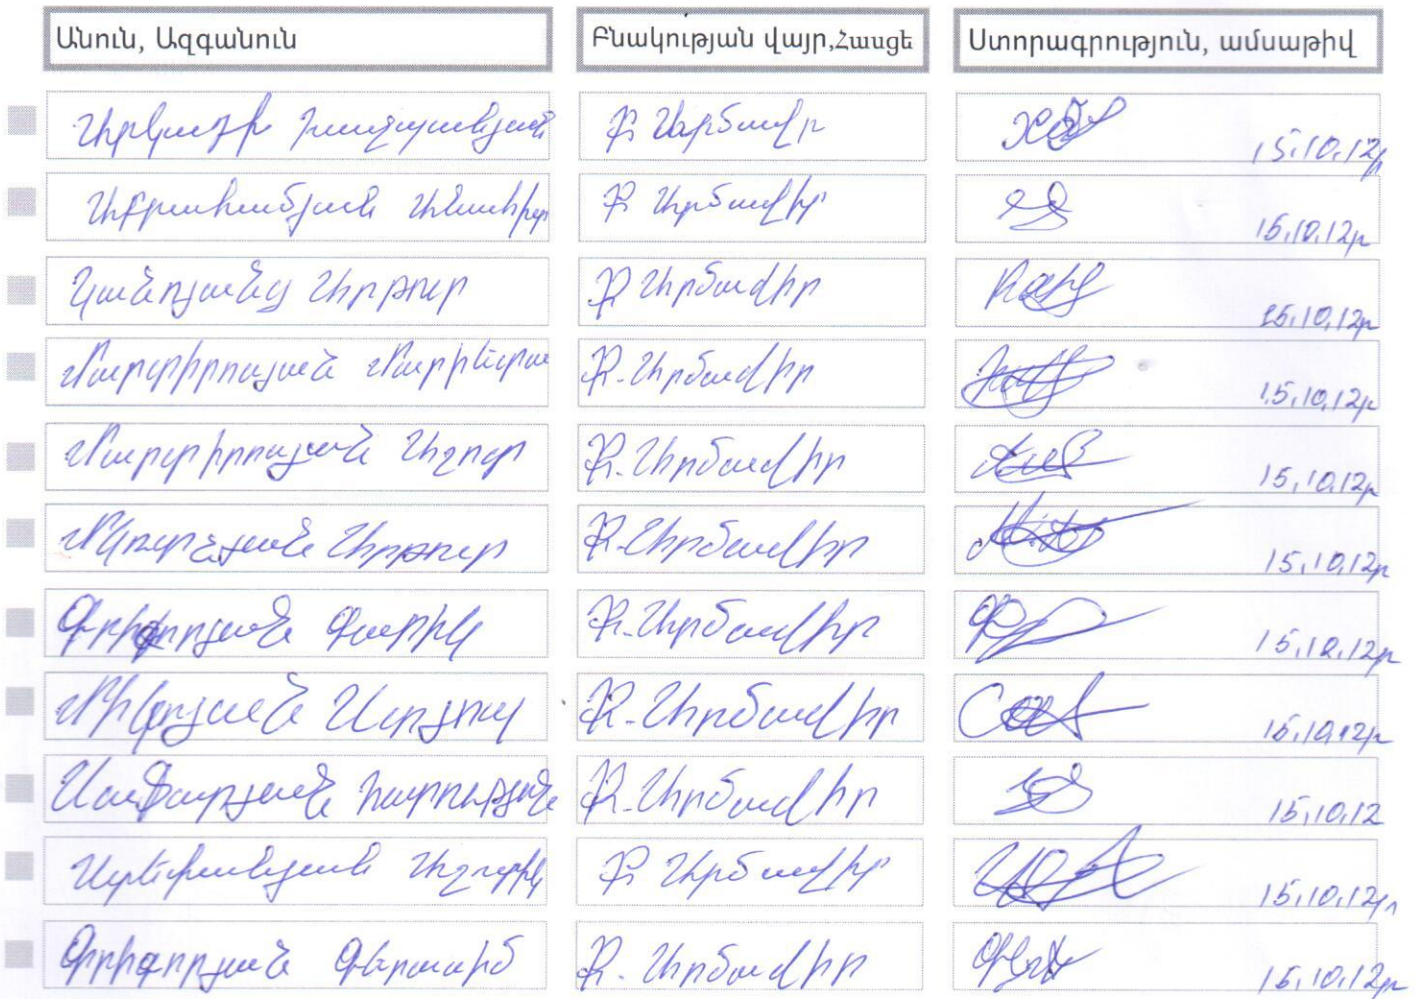 Անուն, Ազգանուն Բնակության վայր,Հասցե Ստորագրություն, ամսաթիվ
Արկադի Խաչպանյան Ք. Արմավիր 15.10.12թ
Աբրահամյան Անահիտ Ք. Արմավիր 15.10.12թ
Կանոյանց Արթուր Ք. Արմավիր 15.10.12թ
Մարտիրոսյան Մարինետա Ք. Արմավիր 15.10.12թ
Մարտիրոսյան Աշոտ Ք. Արմավիր 15.10.12թ
Մկրտչյան Արթուր Ք. Արմավիր 15.10.12թ
Գրիգորյան Գարիկ Ք. Արմավիր 15.10.12թ
Ք. Արմավիր 15.10.12թ
Սաֆարյան Հարություն Ք. Արմավիր 15.10.12
Ստեփանյան Աշոտիկ Ք. Արմավիր 15.10.12թ
Գրիգորյան Գերասիմ Ք. Արմավիր 15.10.12թ